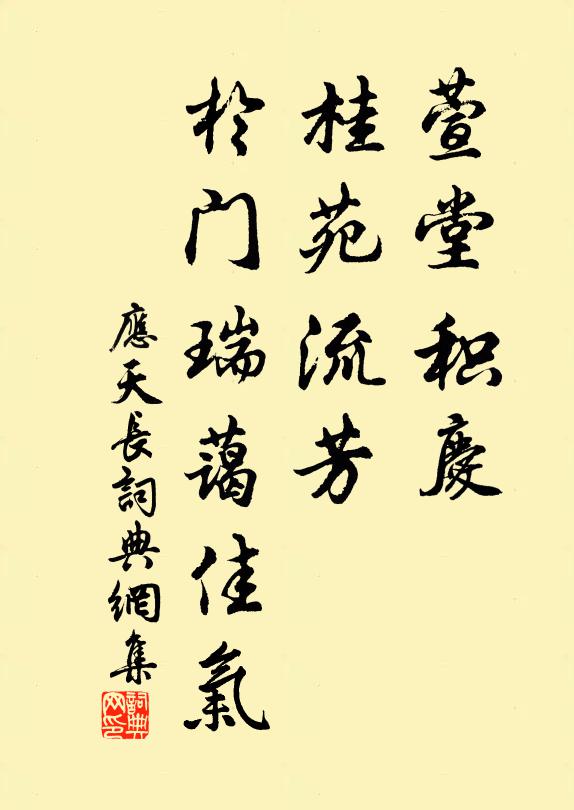 萱堂积慶
桂苑流芳
於门瑞藹佳氣
應天長詞典網集
詞典网印